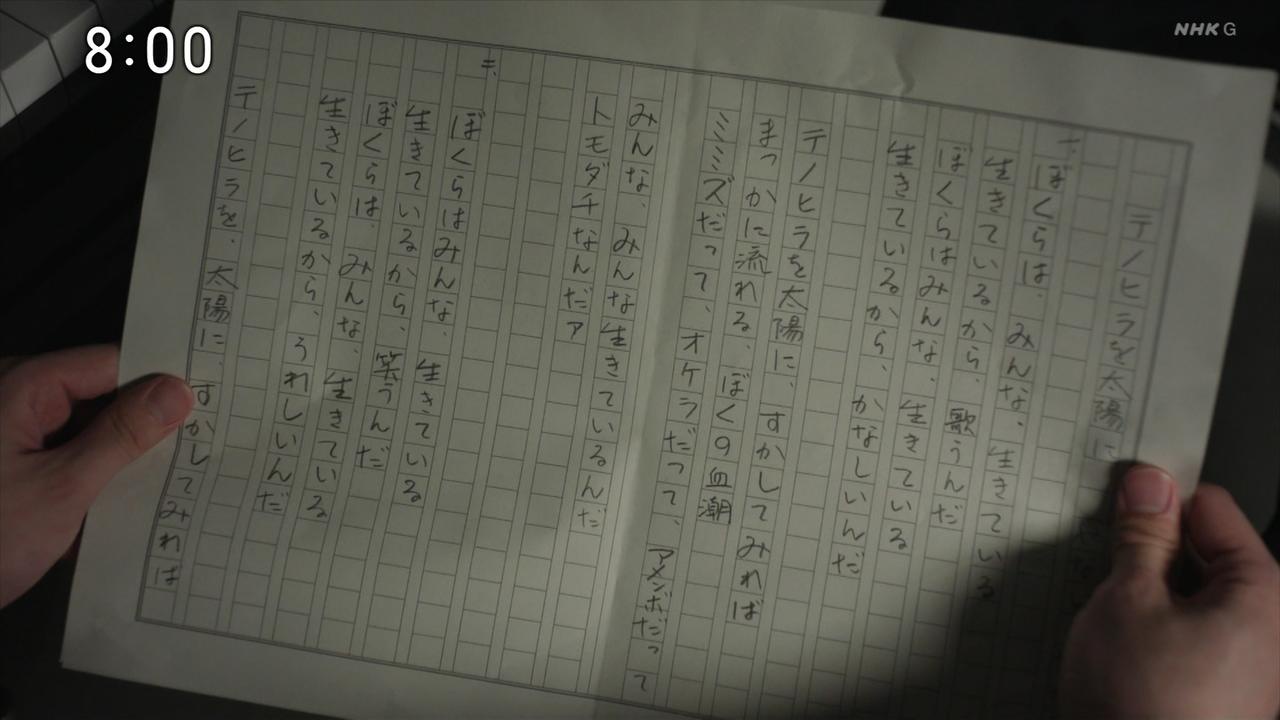 8:00
NHK G
テノヒラを太陽に
一、
ぼくらは、みんな、生きている
生きているから、歌うんだ
ぼくらはみんな、生きている
生きているから、かなしいんだ
テノヒラを太陽に、すかしてみれば
まっかに流れる、ぼくの血潮
ミミズだって、オケラだって、アメンボだって
みんな、みんな生きているんだ
トモダチなんだァ
二、
ぼくらはみんな、生きている
生きているから、笑うんだ
ぼくらは、みんな、生きている
生きているから、うれしいんだ
テノヒラを、太陽に、すかしてみれば